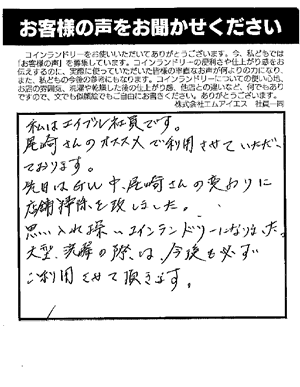 お客様の声をお聞かせください
コインランドリーをお使いいただいてありがとうございます。今、私どもでは
「お客様の声」を募集しています。コインランドリーの便利さや仕上がり感をお
伝えするのに、実際に使っていただいた皆様の率直なお声が何よりの力になり、
また、私どもの今後の参考にもなります。コインランドリーについての使い心地、
お店の雰囲気、洗濯や乾燥した後の仕上がり感、他店との違いなど、何でもあり
ですので、文でも似顔絵でもご自由にお書きください。ありがとうございます。
株式会社エムアイエス 社員一同
私はエイブル社員です。
尾崎さんのオススメで利用させていただい
ております。
先日はGW中、尾崎さんの変わりに
店舗掃除を致しました。
思い入れ深いコインランドリーになりました。
大型洗濯の際は、今後も必ず
ご利用させて頂きます。